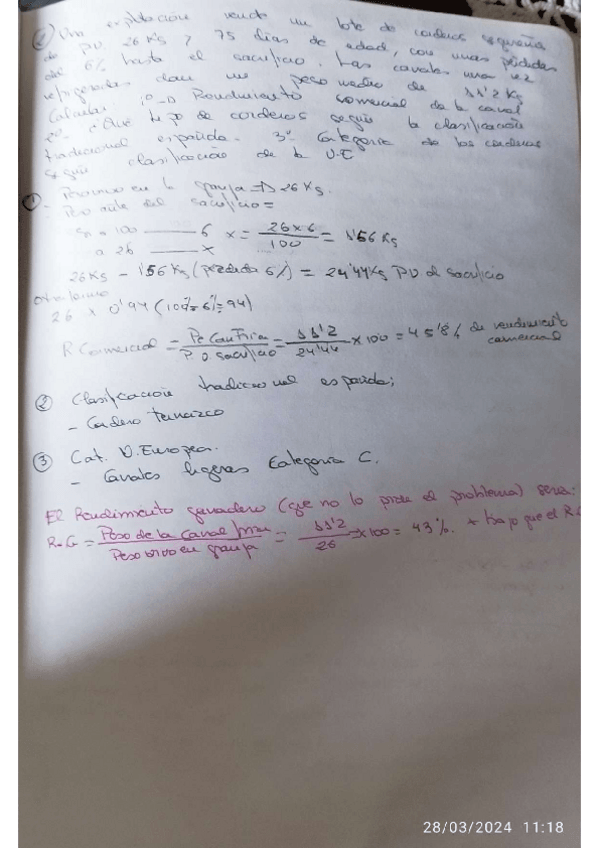 ② Una explotación vende un lote de corderos segureña
de P.V. 26 Kgs y 75 días de edad, con unas pérdidas
del 6% hasta el sacrificio. Las canales una vez
refrigeradas dan un peso medio de 11'2 Kg
Calcular 1º Rendimiento comercial de la canal
2º ¿Qué tipo de corderos según la clasificación
tradicional española. 3º Categoría de los corderos
según clasificación de la U.E
① - Peso vivo en la granja → 26 Kgs.
- Peso antes del sacrificio =
Si a 100 — 6 x = 26 x 6 / 100 = 1'56 Kg
a 26 — x
26 Kgs - 1'56 Kg (perdida 6%) = 24'44 Kg P.V. de sacrificio
Otra forma
26 x 0'94 (100%-6%=94)
R Comercial = Pc Can Fría / P.V. Sacrificio = 11'2 / 24'44 x 100 = 45'8% de rendimiento comercial
② Clasificación tradicional española;
- Cordero ternasco
③ Cat. U. Europea.
- Canales ligeras Categoría C.
El Rendimiento ganadero (que no lo pide el problema) seria:
R.G = Peso de la Canal fria / Peso vivo en granja = 11'2 / 26 x 100 = 43%. * bajo que el R.C
28/03/2024 11:18